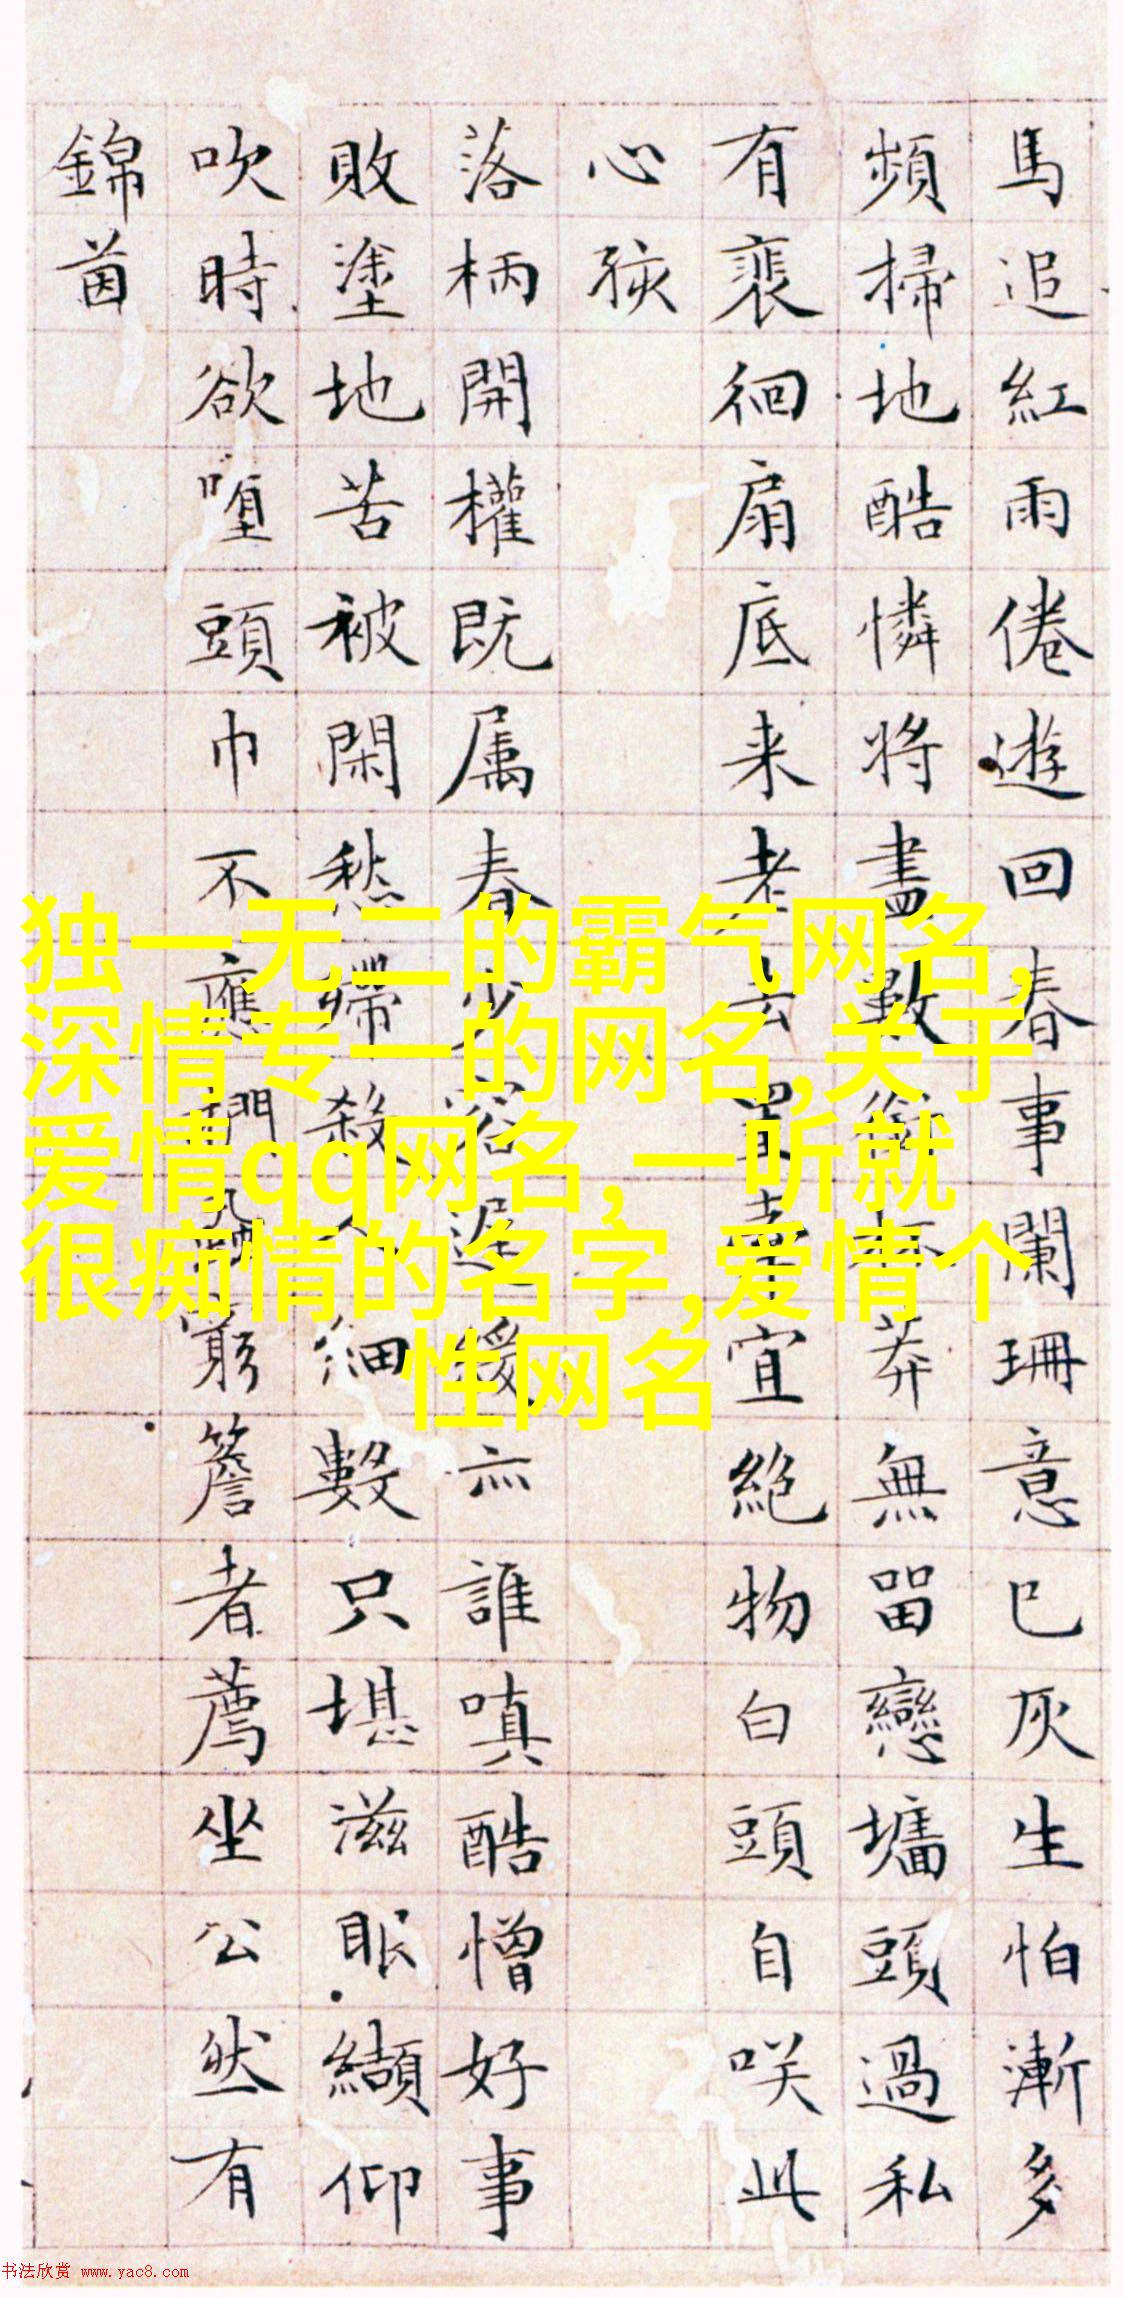 馬追紅雨倦遊回春事闌珊意已灰生怕漸多
頻掃地酷憐將盡數銜杯莽無留戀墻頭過私
有裴徊扇底来老去置幸宜絶物白頭自咲此
心孩
落柄開權既属春少容遲緩亦誰嗔酷憎好事
敗塗地苦被閑愁殢殺人細數只堪滋眼纈仰
吹時欲堕頭巾不應捫蝨窮簷者薦坐公然有
錦茵
独一无二的霸气网名,
深情专一的网名,关于
爱情qq网名,一听就
很痴情的名字,爱情个
性网名
书法欣赏 www.yac8.com